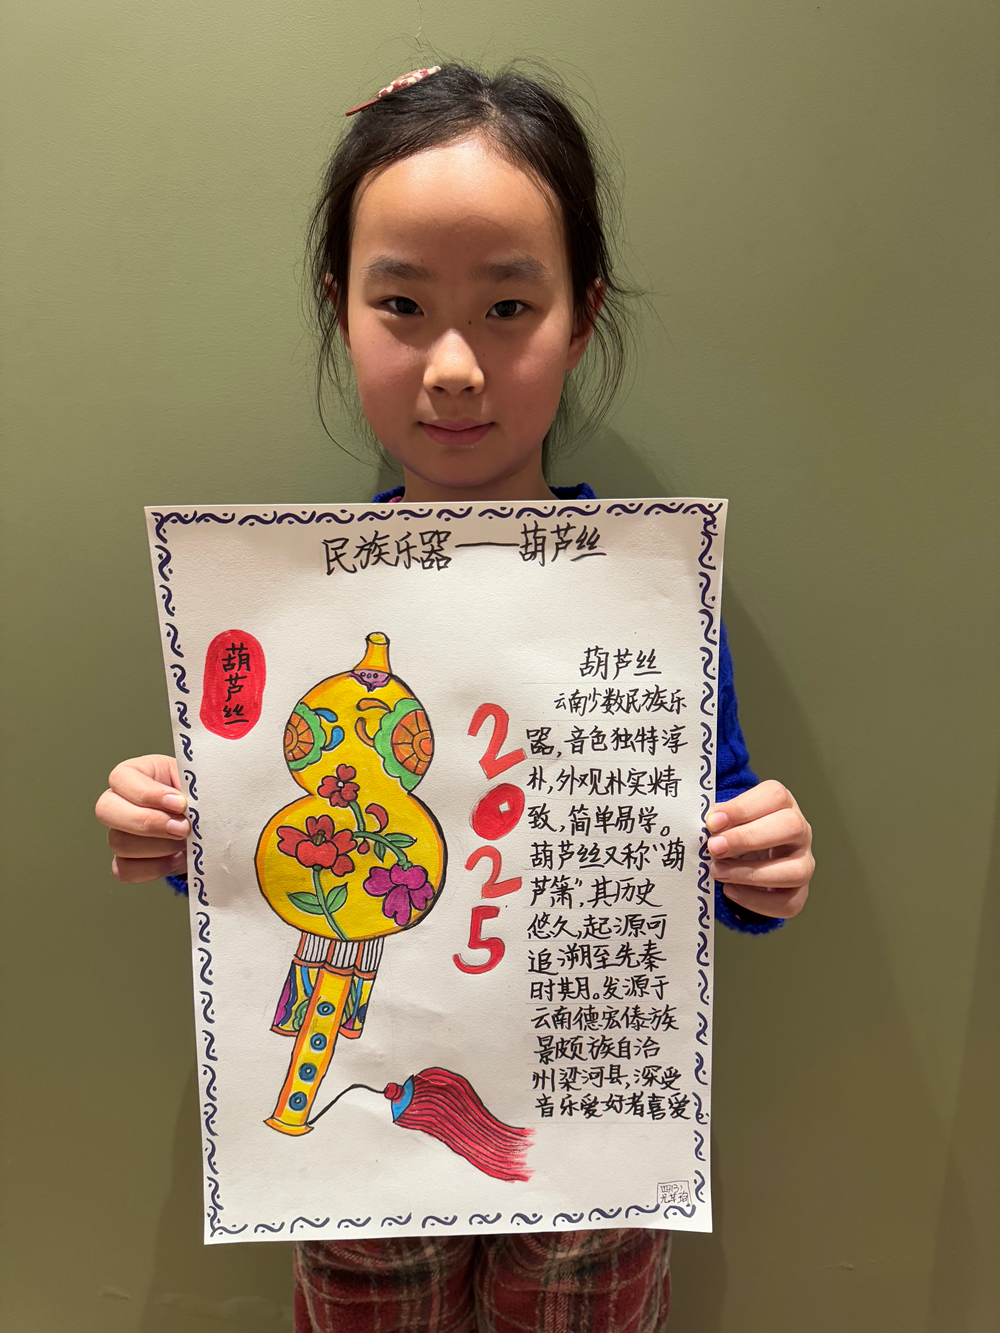 民族乐器——葫芦丝
葫芦丝
2025
葫芦丝
云南少数民族乐
器，音色独特淳
朴，外观朴实精
致，简单易学。
葫芦丝又称“葫
芦箫”，其历史
悠久，起源可
追溯至先秦
时期。发源于
云南德宏傣族
景颇族自治
州梁河县，深受
音乐爱好者喜爱
四（3）